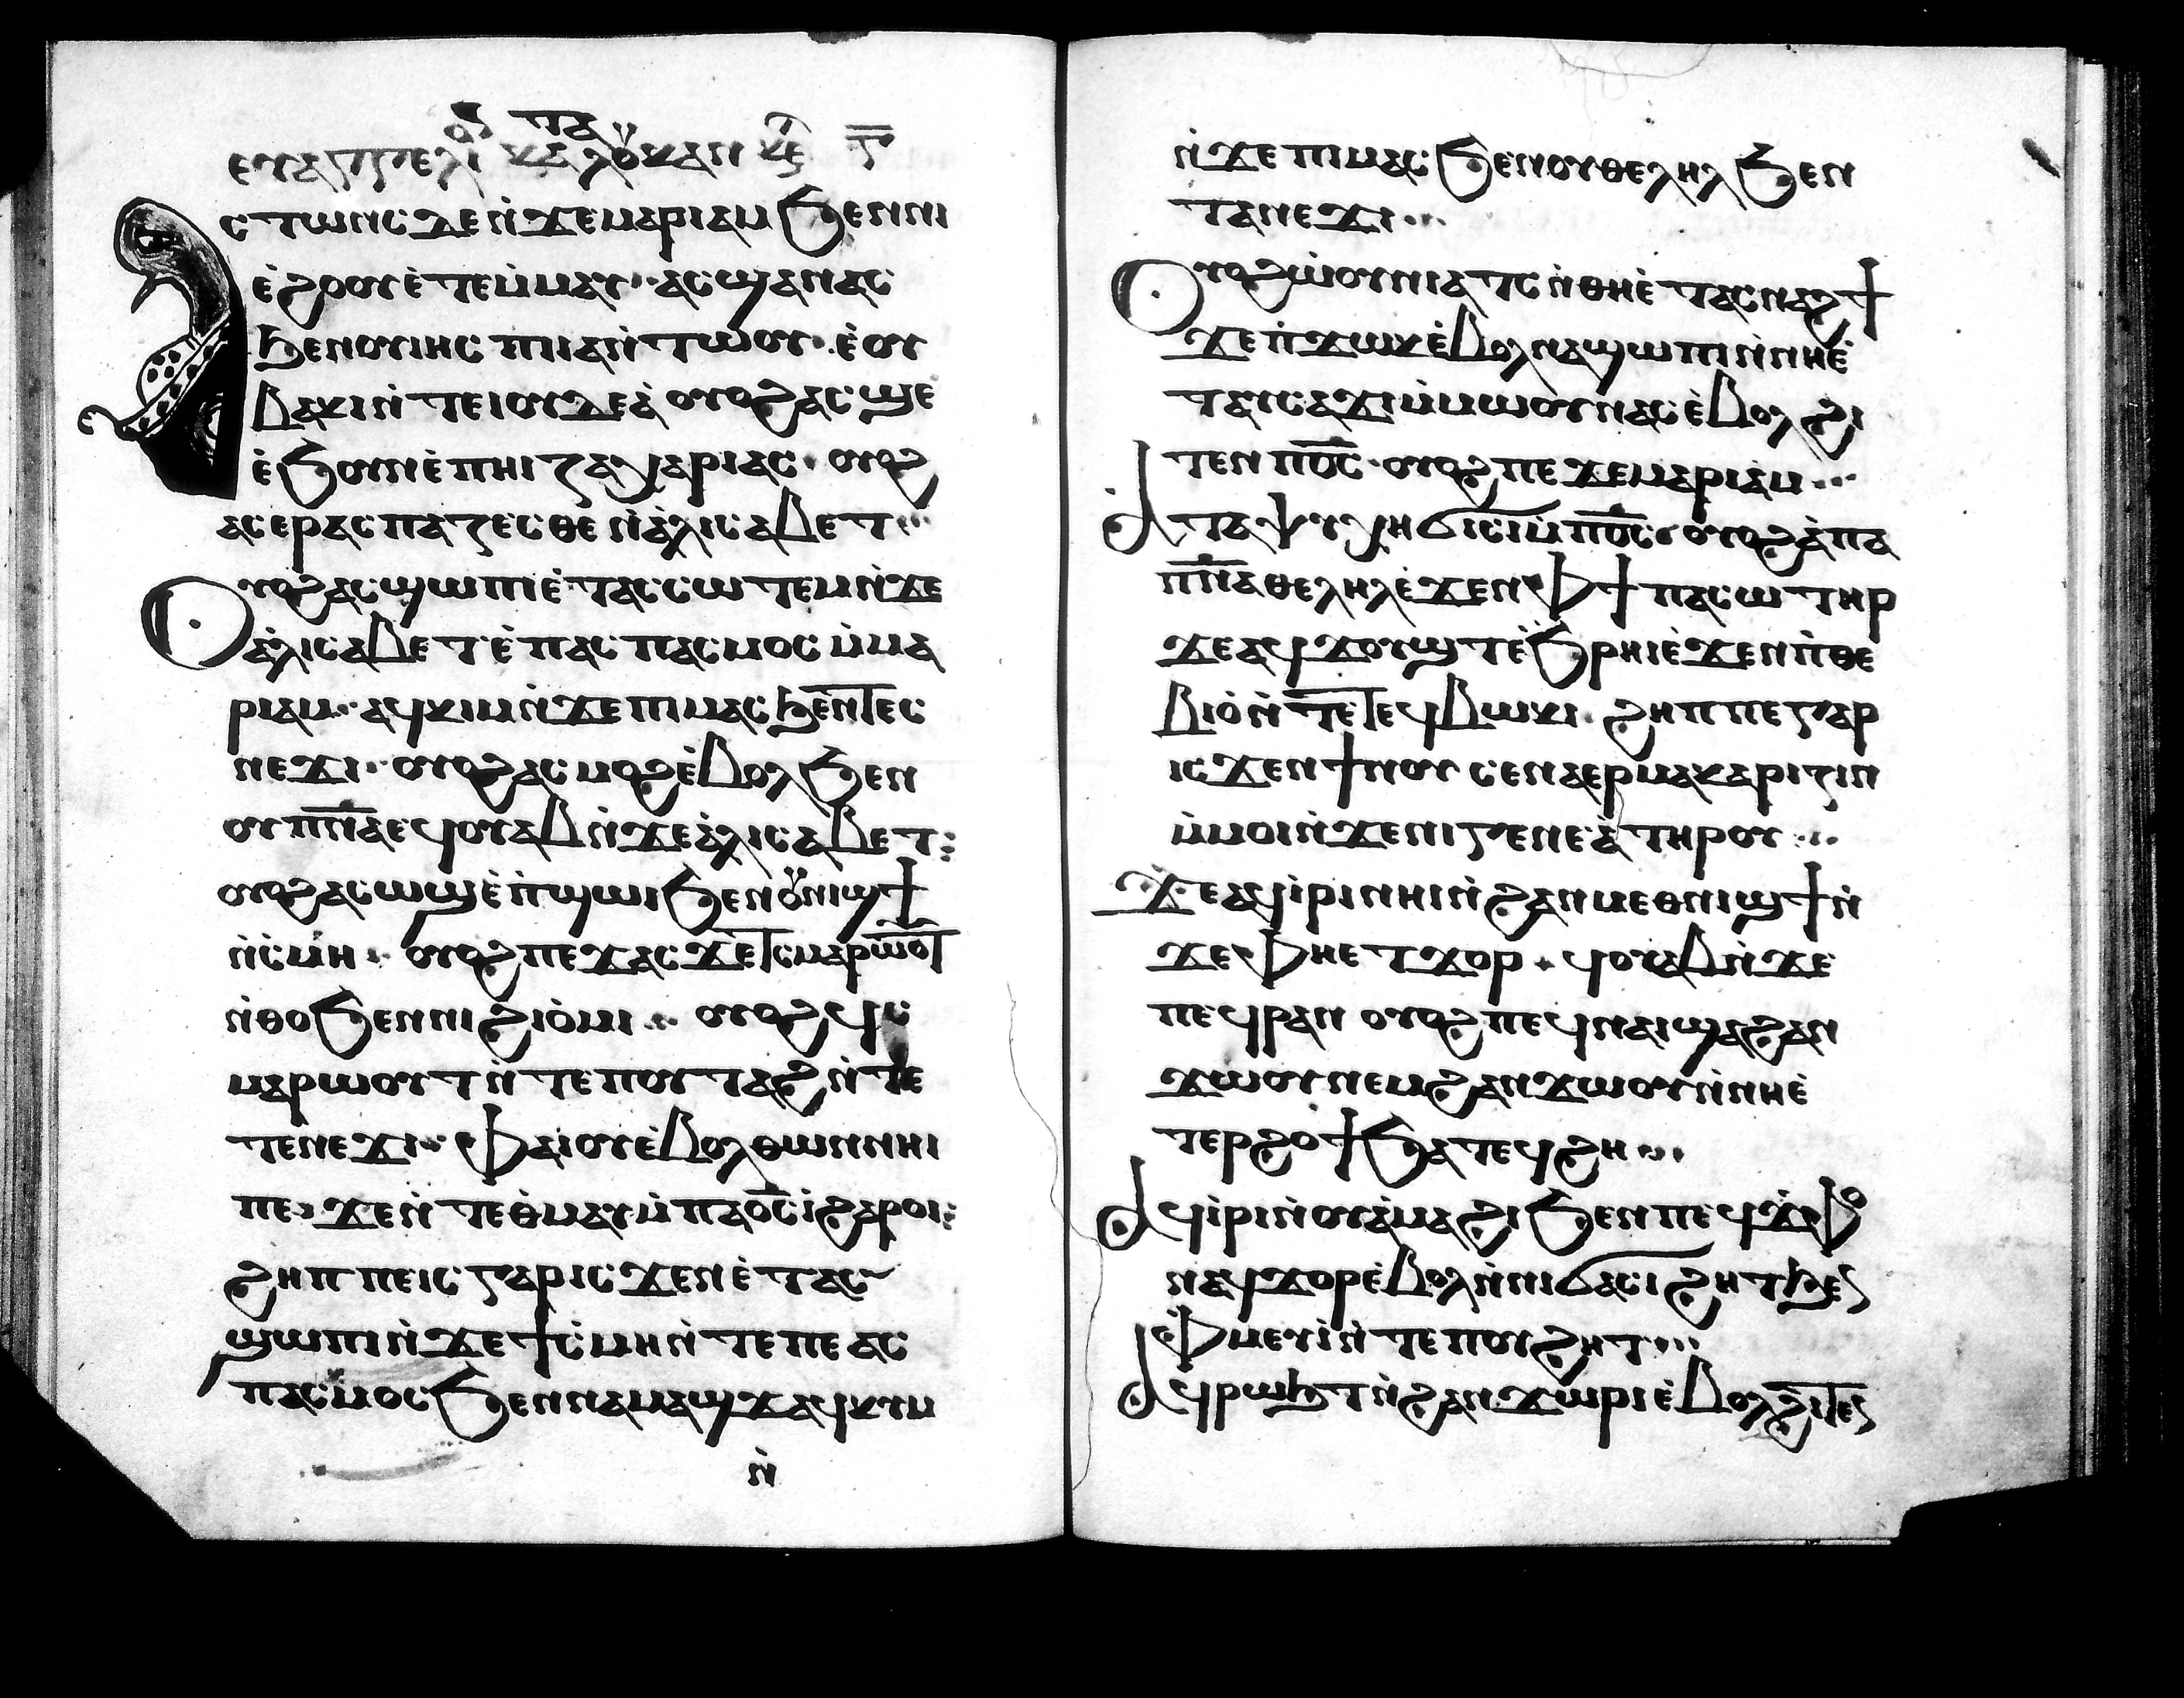 ⲉⲩⲁⲅⲅⲉⲗⲓ ⲕⲁⲗⲟⲩⲕⲁⲛ ⲕⲉ
ⲁⲥⲧⲱⲛⲥ ⲇⲉ ⲛ̀ϫⲉ ⲙⲁⲣⲓⲁⲙ ϧⲉⲛ ⲛⲓ
ⲉ̀ϩⲟⲟⲩ ⲉ̀ⲧⲉⲙ̀ⲙⲁⲩ ⲁⲥϣⲁⲛⲁⲥ
ϧⲉⲛ ⲟⲩⲓⲏⲥ ⲡⲓⲓⲁⲛ̀ⲧⲱⲟⲩ ⲉ̀ⲟⲩ
ⲃⲁⲕⲓ ⲛ̀ⲧⲉ ⲓⲟⲩⲇⲉⲁ̀ ⲟⲩⲟϩ ⲁⲥϣⲉ
ⲉ̀ϧⲟⲩⲛ ⲉ̀ⲡⲏⲓ ⲍⲁⲭⲁⲣⲓⲁⲥ ⲟⲩⲟϩ
ⲁⲥⲉⲣⲁⲥⲡⲁⲍⲉⲥⲑⲉ ⲛ̀ⲁ̀ⲗⲓⲥⲁⲃⲉⲧ
ⲟⲩⲟϩ ⲁⲥϣⲱⲡⲓ ⲉ̀ⲧⲁⲥⲥⲱⲧⲉⲙ ⲛ̀ϫⲉ
ⲁ̀ⲗⲓⲥⲁⲃⲉⲧ ⲉ̀ⲡⲁⲥⲡⲁⲥⲙⲟⲥ ⲙ̀ⲙⲁ
ⲣⲓⲁⲙ ⲁϥⲕⲓⲙ ⲛ̀ϫⲉ ⲡⲓⲙⲁⲥ ϧⲉⲛ ⲧⲉⲥ
ⲛⲉϫⲓ ⲟⲩⲟϩ ⲁⲥⲙⲟϩ ⲉ̀ⲃⲟⲗ ϧⲉⲛ
ⲟⲩⲡⲛ̅ⲁ ⲉϥⲟⲩⲁⲃ ⲛ̀ϫⲉ ⲁ̀ⲗⲓⲥⲁⲃⲉⲧ
ⲟⲩⲟϩ ⲁⲥⲱϣ ⲉ̀ⲡ̀ϣⲱⲓ ϧⲉⲛ ⲟⲩⲛⲓϣϯ
ⲛ̀ⲥ̀ⲙⲏ ⲟⲩⲟϩ ⲡⲉϫⲁⲥ ϫⲉ ⲧⲥⲙⲁⲣⲱⲟⲩⲧ
ⲛ̀ⲑⲟ ϧⲉⲛ ⲛⲓϩⲓⲟ̀ⲙⲓ ⲟⲩⲟϩ ϥⲥ
ⲙⲁⲣⲱⲟⲩⲧ ⲛ̀ⲧⲉ ⲡⲟⲩⲧⲁϩ ⲛ̀ⲧⲉ
ⲧⲉⲛⲉϫⲓ ⲫⲁⲓ ⲟⲩ ⲉ̀ⲃⲟⲗ ⲑⲱⲛ ⲛⲏⲓ
ⲡⲉ ϫⲉ ⲛ̀ⲧⲉ ⲑ̀ⲙⲁⲩ ⲙ̀ⲡⲁⲟ̅ⲥ̅ ⲓ̀ ϩⲁⲣⲟⲓ
ϩⲏⲡⲡⲉ ⲓⲥ ⲅⲁⲣ ⲓⲥϫⲉⲛ ⲉ̀ⲧⲁⲥ
ϣⲱⲡⲓ ⲛ̀ϫⲉ ϯⲥ̀ⲙⲏ ⲛ̀ⲧⲉ ⲡⲉⲁⲥ
ⲡⲁⲥⲙⲟⲥ ϧⲉⲛ ⲛⲁⲙⲁϣϫ ⲁϥⲕⲩⲙ
ⲛ̀
ⲛ̀ϫⲉ ⲡⲓⲙⲁⲥ ϧⲉⲛ ⲟⲩⲑⲉⲗⲏⲗ ϧⲉⲛ
ⲧⲁⲛⲉϫⲓ
ⲟⲩⲟϩ ⲱ̀ⲟⲩⲛⲓⲁⲧⲥ ⲛ̀ⲑⲏⲉ̀ⲧⲁⲥⲛⲁϩϯ
ϫⲉ ⲡ̀ϫⲱⲕ ⲉ̀ⲃⲟⲗ ⲛⲁϣⲱⲡⲓ ⲛ̀ⲛⲏⲉ̀
ⲧⲁⲩⲥⲁϫⲓ ⲙ̀ⲙⲱⲟⲩ ⲛⲁⲥ ⲉ̀ⲃⲟⲗ ϩⲓ
ⲧⲉⲛ ⲡⲟ̅ⲥ̅ ⲟⲩⲟϩ ⲡⲉϫⲉ ⲙⲁⲣⲓⲁⲙ
ⲁ̀ ⲧⲁⲯⲩⲭⲏ ϭⲓⲥⲓ ⲙ̀ⲡⲟ̅ⲥ̅ ⲟⲩⲟϩ ⲁ̀ ⲡⲁ
ⲡⲛ̅ⲁ ⲑⲉⲗⲏⲗ ⲉ̀ϫⲉⲛ ⲫϯ ⲡⲁⲥⲱⲧⲏⲣ
ϫⲉ ⲁϥϫⲟⲩϣⲧ ⲉ̀ϧⲣⲏⲓ ⲉ̀ϫⲉⲛ ⲡ̀ⲑⲉ
ⲃⲓⲟ̀ ⲛ̀ⲧⲉ ⲧⲉϥⲃⲱⲕⲓ ϩⲏⲡⲡⲉ ⲅⲁⲣ
ⲓⲥϫⲉⲛ ϯⲛⲟⲩ ⲥⲉⲛⲁⲉⲣⲙⲁⲕⲁⲣⲓⲍⲓⲛ
ⲙ̀ⲙⲟⲓ ⲛ̀ϫⲉ ⲛⲓⲅⲉⲛⲉⲁ̀ ⲧⲏⲣⲟⲩ
ϫⲉ ⲁϥⲓ̀ⲣⲓ ⲛⲏⲓ ⲛ̀ϩⲁⲛⲙⲉⲑⲛⲓϣϯ ⲛ̀
ϫⲉ ⲫⲏⲉⲧϫⲟⲣ ϥⲟⲩⲁⲃ ⲛ̀ϫⲉ
ⲡⲉϥⲣⲁⲛ ⲟⲩⲟϩ ⲡⲉϥⲛⲁⲓ ϣⲁ ϩⲁⲛ
ϫⲱⲟⲩ ⲛⲉⲙ ϩⲁⲛϫⲱⲟⲩ ⲛ̀ⲛⲏⲉ̀
ⲧⲉⲣϩⲟϯ ϧⲁ ⲧⲉϥϩⲏ
ⲁϥⲓ̀ⲣⲓ ⲛ̀ⲟⲩⲁ̀ⲙⲁϩⲓ ϧⲉⲛ ⲡⲉϥϫ̀ⲫⲟ
ⲛⲁϥϫⲟⲣ ⲉ̀ⲃⲟⲗ ⲛ̀ⲛⲓϭⲁⲥⲓϩⲏⲧ ϧⲉⲛ
ⲫ̀ⲙⲉⲩⲓ̀ ⲛ̀ⲧⲉ ⲡⲟⲩϩⲏⲧ
ⲁϥⲣⲱϧⲧ ⲛ̀ϩⲁⲛϫⲱⲣⲓ ⲉ̀ⲃⲟⲗ ϩⲓⲧⲉⲛ